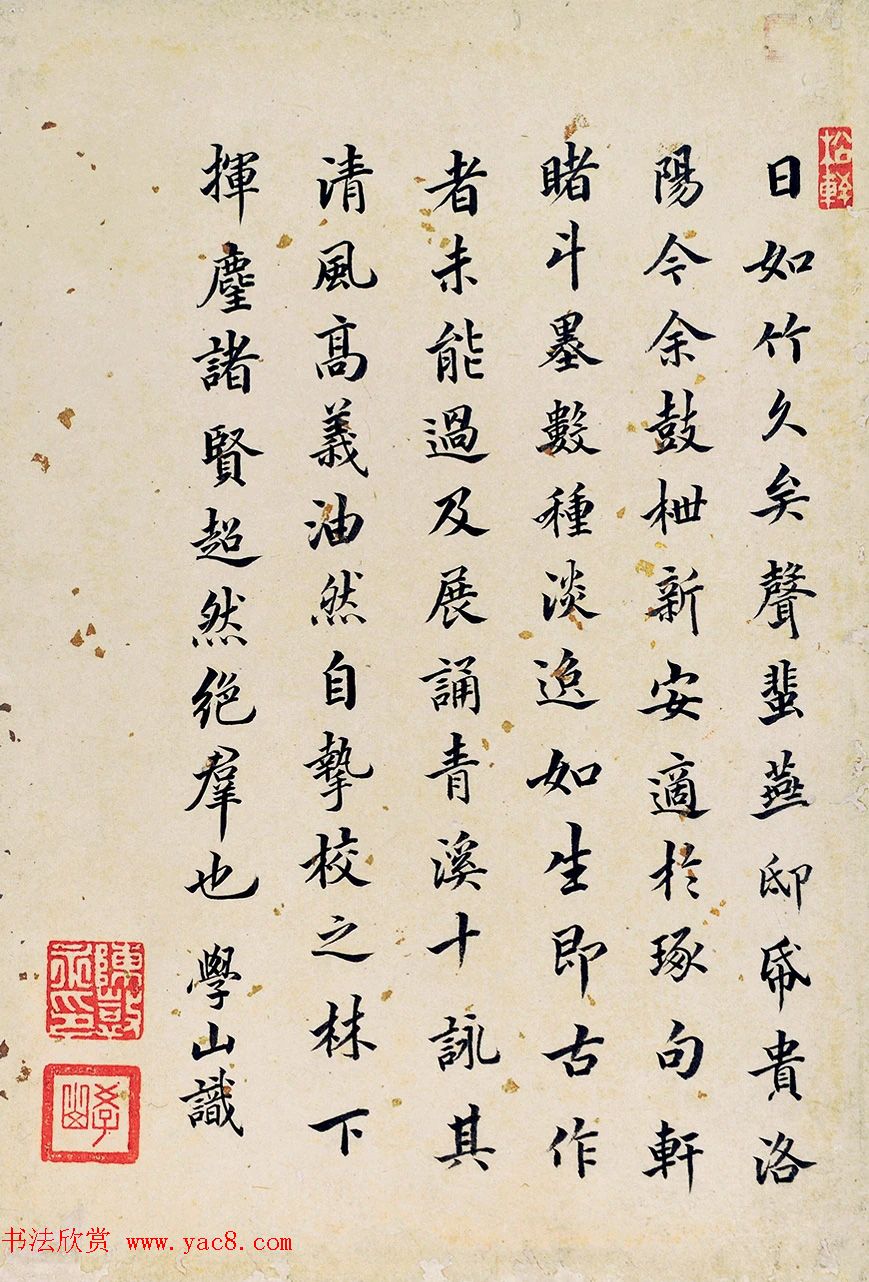 日如竹久矣聲蜚燕邸帋貴洛
陽今余鼓枻新安適於琢句軒
睹斗墨數種淡逸如生即古作
者未能過及展誦青溪十詠其
清風高義油然自摯校之林下
揮麈諸賢超然绝羣也 學山識
陳敳永印
學山
书法欣赏 www.yac8.com